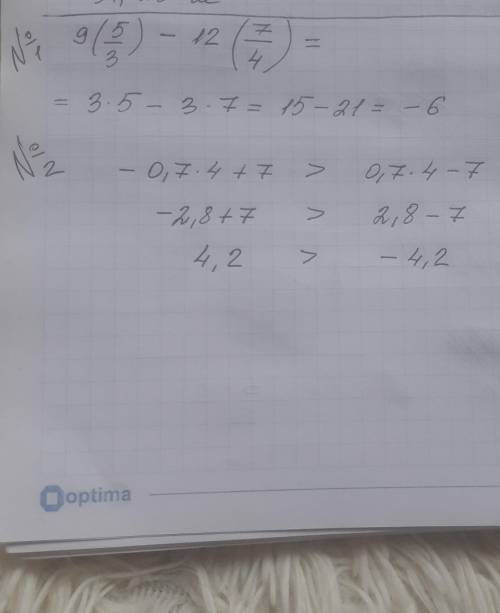 №1 9(5/3) - 12(7/4) =
= 3·5 - 3·7 = 15-21 = -6
№2 -0,7·4+7 > 0,7·4-7
-2,8+7 > 2,8-7
4,2 > -4,2
optima